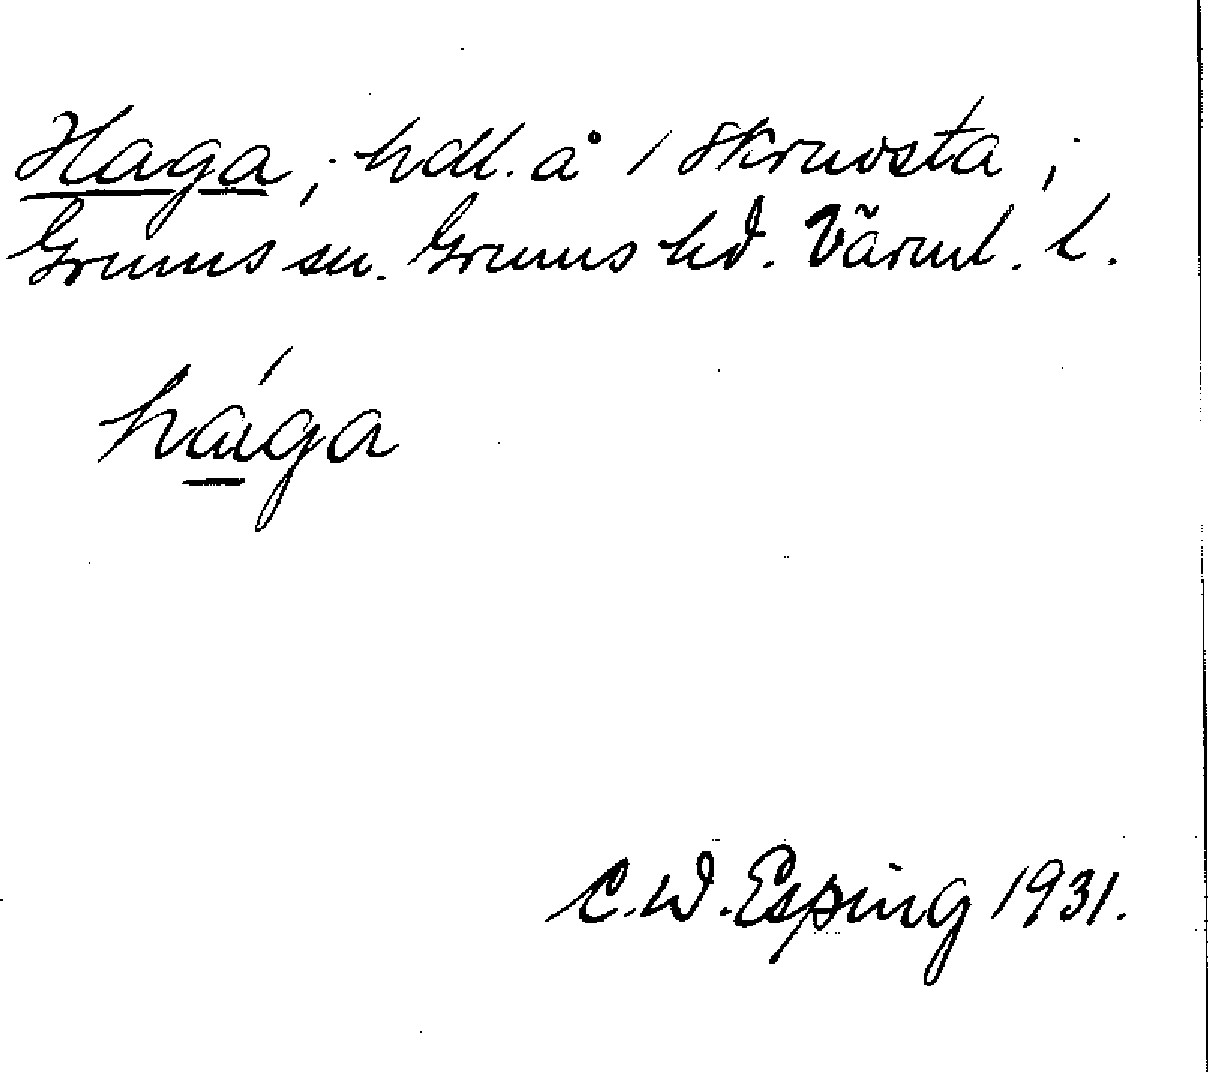 Haga, hdl. å 1 Skruvsta,
Grums sn. Grums hd. Värml. l.
hága
C.W. Esping 1931.